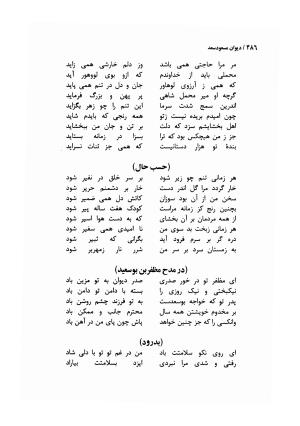 ۴۸۶ / دیوان مسعودسعد
مر مرا حاجتی همی باشد وز دلم خارشی همی زاید
محملی باید از خداوندم که ازو بوی لووهور آید
که همی ز آرزوی لوهاور جان و دل در تنم همی پاید
گرچه او میر محمل شاهی پر بهن و بزرگ فرماید
اندرین سمج شدت سرما این تنم را چو زهر بگزاید
چون امیدم بریده نیست زتو همه رنجی که بایدم شاید
اهل بخشایشم سزد که دلت بر تن و جان من ببخشاید
جز ز من هیچکس بود که ترا بسزا در زمانه بستاید
بنده تو هزار دستانیست که همی جز ثنات نسراید
(حسب حال)
هر زمانی تنم چو زیر شود بر سر خلق در نفیر شود
خار گردد مرا گل اندر دست خار بر دشمنم حریر شود
سخن من از آن بود سوزان کاتش دل همی ضمیر شود
بچنین رنج کز زمانه مراست کودک هفت ساله پیر شود
از همه مردمان بر آن بخشای که به دست هوا اسیر شود
هر زمانی زبخت بد سوی من نا امیدی همی سفیر شود
دره گر بر سرم فرود آید بگرانی که ثبیر شود
به زمستان سرد بر سر من شرر نار زمهریر شود
(در مدح مظفربن بوسعید)
ای مظفر تو در خور صدری صدر دیوان به تو مزین باد
نیکبختی و نیک روزی را بسته با دامن تو دامن باد
پدر تو که خواجه بوسعدست به تو فرزند چشم روشن باد
بر مخدوم خویشتن همه سال محترم جانب و ممکن باد
وانکسی را که جز چنین خواهد پاش چون پای من در آهن باد
(بدرود)
ای روی نکو سلامتت باد من در غم تو تو با دلی شاد
رفتی و شدی مرا نبردی ایزد بسلامتت بیاراد